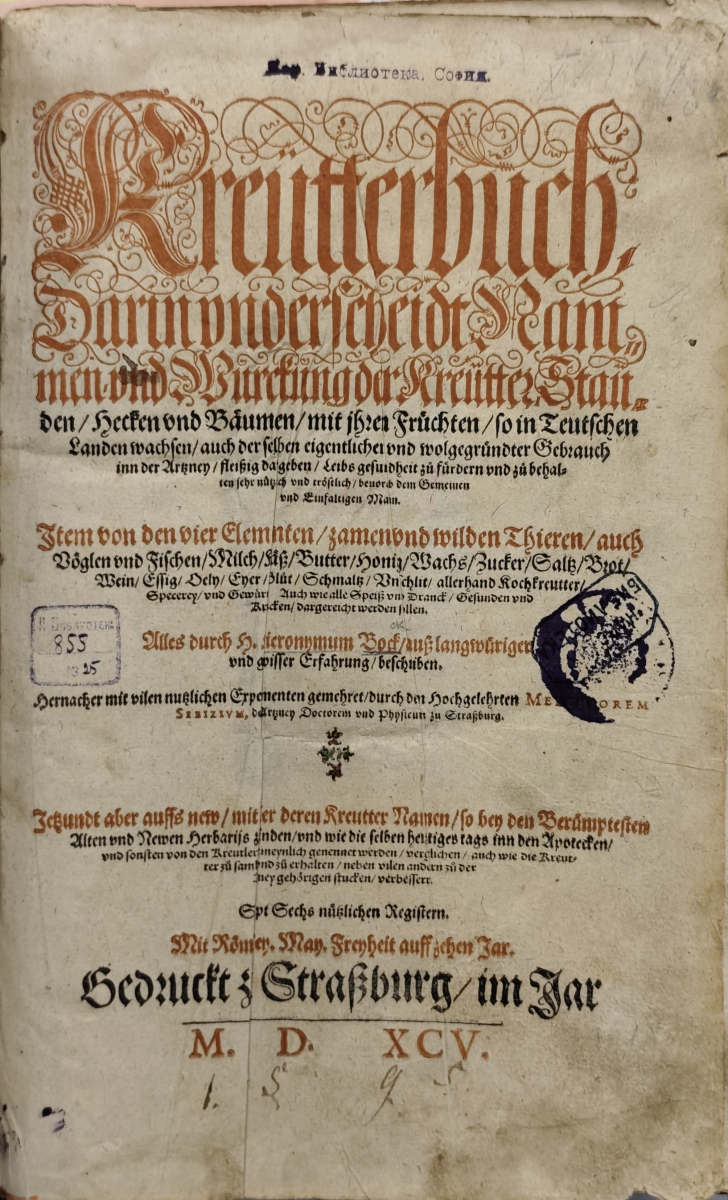 Нар. Библиотека. София.
Kreütterbuch,
Darin vnderscheidt Nam
men vnd Würckung der Kreütter, Stau
den / Hecken vnd Bäumen / mit jhren Früchten / so in Teutschen
Landen wachsen / auch der selben eigentlicher vnd wolgegründter Gebrauch
inn der Artzney / fleißig dargeben / Leibs gesundheit zů fürdern vnd zů behal-
ten sehr nützlich vnd tröstlich / bevorab dem Gemeinen
vnd Einfaltigen Mann.
Item von den vier Elemnten / zamen vnd wilden Thieren / auch
Vöglen vnd Fischen / Milch / Käß / Butter / Honig / Wachs / Zucker / Saltz / Brot /
Wein / Essig / Oely / Eyer / Blůt / Schmaltz / Vnschlit / allerhand Kochkreutter /
Specerey / vnd Gewürtz Auch wie alle Speiß vnd Dranck / Gesunden vnd
Krancken / dargereicht werden sollen.
855
25
Alles durch H. Hieronymum Bock / auß langwüriger
vnd gwisser Erfahrung / beschriben.
Hernacher mit vilen nutzlichen Experimenten gemehret / durch den Hochgelehrten
SEBIZIVM, der Artzney Doctorem vnd Physicum zu Straßburg.
Jetzundt aber auffs new / mit der deren Kreutter Namen / so bey den Berümptesten
Alten vnd Newen Herbarijs finden / vnd wie die selben heutiges tags inn den Apotecken /
vnd sonsten von den Kreutlern gmeynlich genennet werden / verglichen / auch wie die Kreut-
ter zů samlen vnd zů erhalten / neben vilen andern zů der
gehörigen stucken / verbessert.
Sechs nützlichen Registern.
Mit Römey. May. Freyheit auff zehen Jar.
Gedruckt zů Straßburg / im Jar
M. D. XCV.
1. 5 9 5